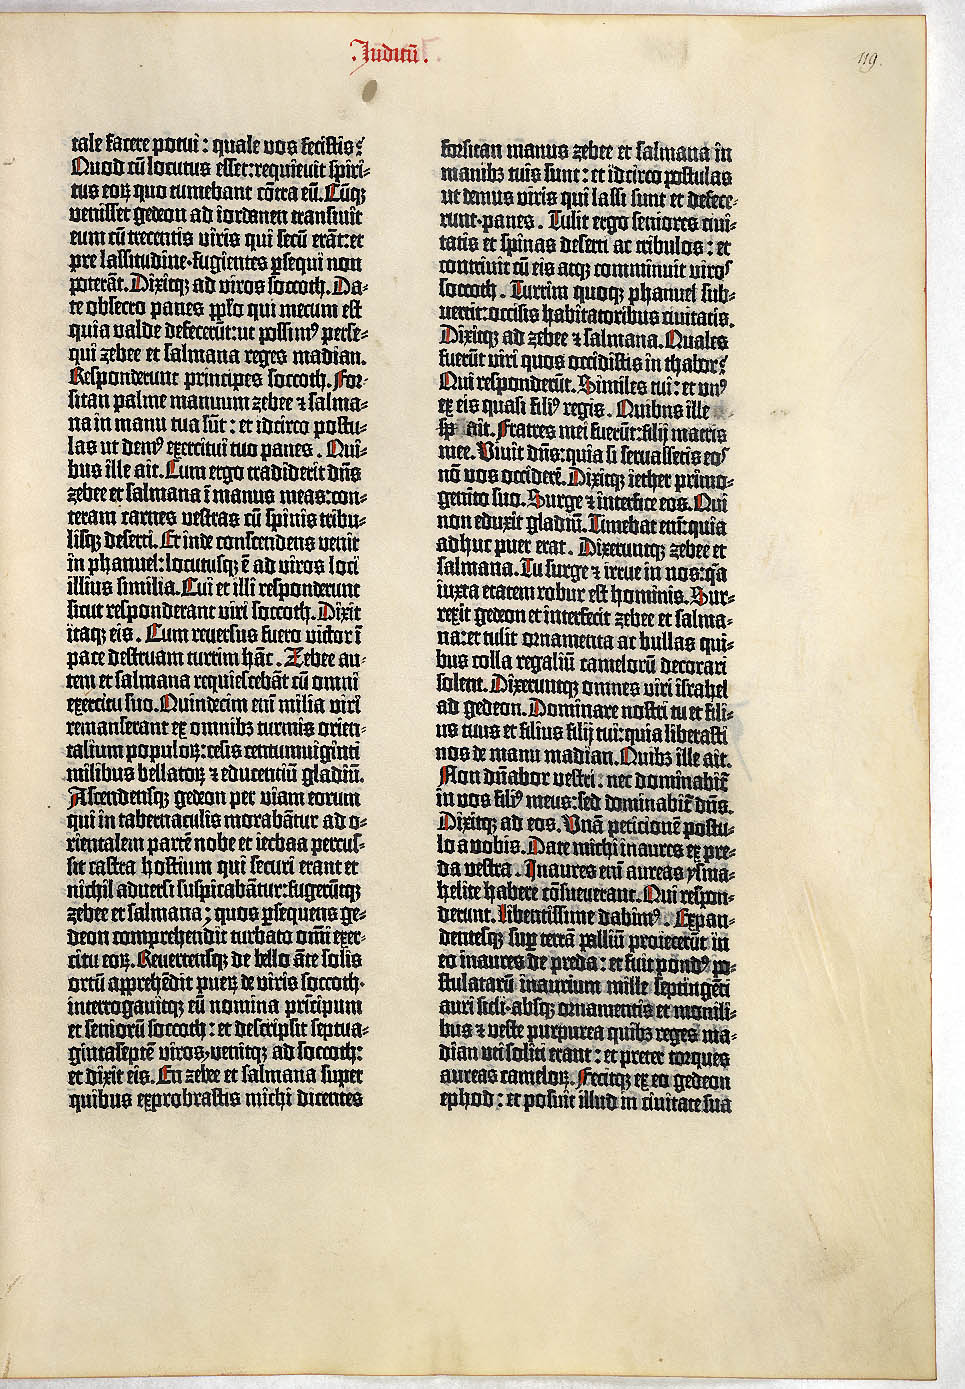 .Iudicū.
119.
tale facere potui : quale vos fecistis?
Quod cū locutus esset:requievit spiri-
tus eoꝝ quo tumebant cōtra eū. Cūqꝫ
venisset gedeon ad iordanen transivit
eum cū trecentis viris qui secū erāt:et
pre lassitudine·fugientes ꝑsequi non
poterāt. Dixitqꝫ ad viros soccoth. Da-
te obsecro panes pp̄lo qui mecum est
quia valde defecerūt:ut possimꝰ perse-
qui zebee et salmana reges madian.
Responderunt principes soccoth. For-
sitan palme manuum zebee ⁊ salma-
na in manu tua sūt : et idcirco postu-
las ut demꝰ exercitui tuo panes . Qui-
bus ille ait. Cum ergo tradiderit dn̄s
zebee et salmana ī manus meas:con-
teram carnes vestras cū spinis tribu-
lisqꝫ deserti. Et inde conscendens venit
in phanuel:locutusqꝫ ē ad viros loci
illius similia. Cui et illi responderunt
sicut responderant viri soccoth. Dixit
itaqꝫ eis . Cum reversus fuero victor ī
pace destruam turrim hāc . Zebee au-
tem et salmana requiescebāt cū omni
exercitu suo. Quindecim eni milia viri
remanserant ex omnibꝫ turmis orien-
talium populoꝝ:cesis centumviginti
milibus bellatoꝝ ⁊ educentiū gladiū.
Ascendensqꝫ gedeon per viam eorum
qui in tabernaculis morabātur ad o-
rientalem partē nobe et iecbaa percus-
sit castra hostium qui securi erant et
nichil adversi suspicabātur:fugerūtqꝫ
zebee et salmana; quos ꝑsequens ge-
deon comprehendit turbato omni exer-
citu eoꝝ. Revertensqꝫ de bello āte solis
ortū apprehēdit pueꝝ de viris soccoth·
interrogavitqꝫ eū nomina prīcipum
et seniorū soccoth : et descripsit septua-
gintaseptē viros,venitqꝫ ad soccoth:
et dixit eis. En zebee et salmana super
quibus exprobrastis michi dicentes
forsitan manus zebee et salmana in
manibꝫ tuis sunt : et idcirco postulas
ut demus viris qui lassi sunt et defece-
runt·panes . Tulit ergo seniores civi-
tatis et spinas deserti ac tribulos : et
contrivit cū eis atqꝫ comminuit viros
soccoth . Turrim quoqꝫ phanuel sub-
vertit:occisis habitatoribus civitatis.
Dixitqꝫ ad zebee ⁊ salmana. Quales
fuerūt viri quos occidistis in thabor?
Qui responderūt. Similes tui : et unꝰ
ex eis quasi filiꝰ regis . Quibus ille
ait. Fratres mei fuerūt:filij matris
mee. Vivit dn̄s:quia si servassetis eos
nō vos occiderē. Dixitqꝫ iether primo-
genito suo. Surge ⁊ interfice eos. Qui
non eduxit gladiū. Timebat eni:quia
adhuc puer erat . Dixeruntqꝫ zebee et
salmana. Tu surge ⁊ irrue in nos:q̄a
iuxta etatem robur est hominis. Sur-
rexit gedeon et interfecit zebee et salma-
na:et tulit ornamenta ac bullas qui-
bus colla regaliū camelorū decorari
solent. Dixeruntqꝫ omnes viri israhel
ad gedeon. Dominare nostri tu et fili-
us tuus et filius filij tui:quia liberasti
nos de manu madian. Quibꝫ ille ait.
Non dn̄abor vestri : nec dominabit᷑
in vos filiꝰ meus:sed dominabit᷑ dn̄s.
Dixitqꝫ ad eos. Unā peticionē postu-
lo a vobis. Date michi inaures ex pre-
da vestra . Inaures eni aureas ysma-
helite habere cōsueverant. Qui respon-
derunt. libentissime dabimꝰ . Expan-
dentesqꝫ suꝑ terrā palliū proiecerūt in
eo inaures de preda : et fuit pondꝰ po-
stulatarū inaurium mille septingēti
auri sicli·absqꝫ ornamentis et monili-
bus ⁊ veste purpurea quibꝫ reges ma-
dian uti soliti erant : et preter torques
aureas cameloꝝ. Fecitqꝫ ex eo gedeon
ephod : et posuit illud in civitate sua